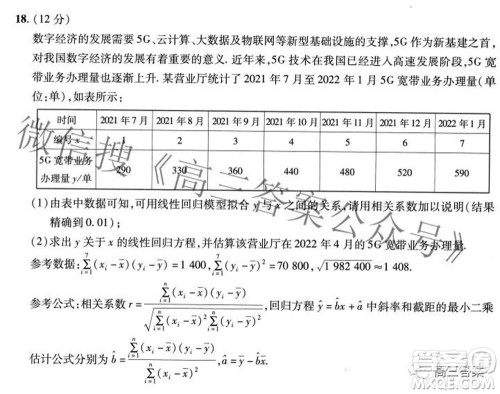 18.(12分)
数字经济的发展需要5G、云计算、大数据及物联网等新型基础设施的支撑,5G作为新基建之首,
对我国数字经济的发展有着重要的意义.近年来,5G技术在我国已经进入高速发展阶段,5G宽
带业务办理量也逐渐上升.某营业厅统计了2021年7月至2022年1月5G宽带业务办理量(单
位:单),如表所示:
时间 2021年7月 2021年8月 2021年9月 2021年10月 2021年11月 2021年12月 2022年1月
编号x 1 2 3 4 5 6 7
5G宽带业务办理量y/单 290 330 360 440 480 520 590
(1)由表中数据可知,可用线性回归模型拟合y与x之间的关系,请用相关系数加以说明(结果
精确到0.01);
(2)求出y关于x的线性回归方程,并估算该营业厅在2022年4月的5G宽带业务办理量.
参考数据:∑_{i=1}^{7}(x_i-x̄)(y_i-ȳ)=1 400,∑_{i=1}^{7}(y_i-ȳ)²=70 800,√1 982 400≈1 408.
参考公式:相关系数r=∑_{i=1}^{n}(x_i-x̄)(y_i-ȳ)/√(∑_{i=1}^{n}(x_i-x̄)²∑_{i=1}^{n}(y_i-ȳ)²),回归方程ŷ=b̂x+â中斜率和截距的最小二乘
估计公式分别为b̂=∑_{i=1}^{n}(x_i-x̄)(y_i-ȳ)/∑_{i=1}^{n}(x_i-x̄)²,â=ȳ-b̂x̄.
微信搜《高三答案公众号》
高三答案